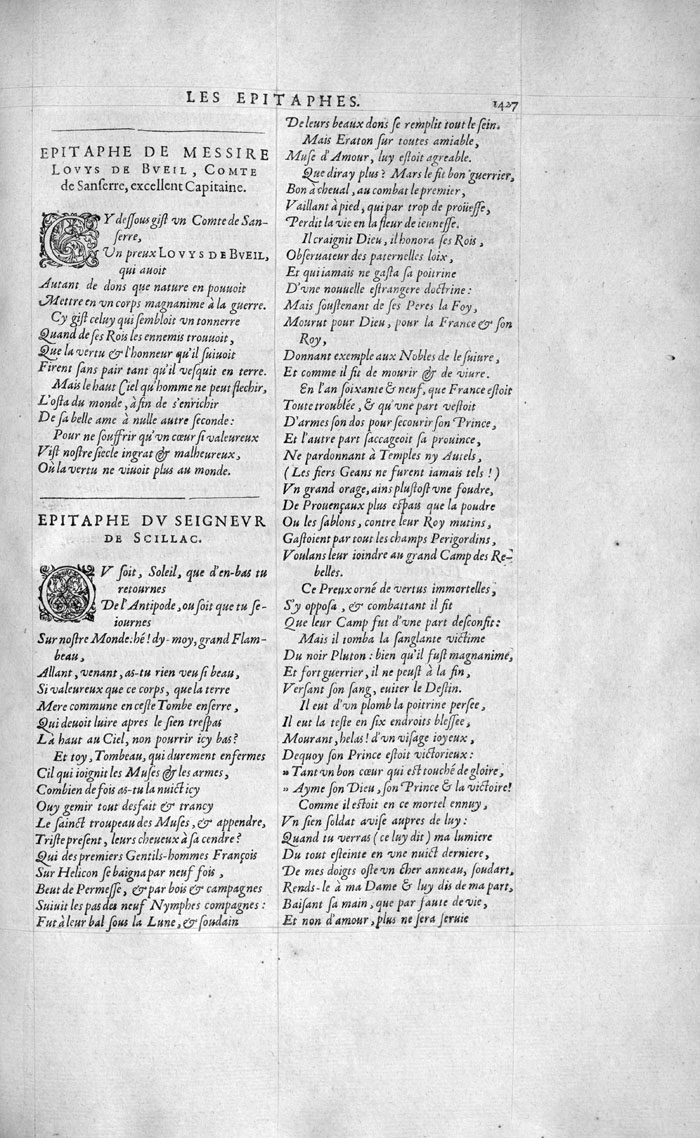 LES EPITAPHES.
1427
EPITAPHE DE MESSIRE
LOVYS DE BVEIL, COMTE
de Sanserre, excellent Capitaine.
CY dessous gist vn Comte de San-
serre,
Vn preux LOVYS DE BVEIL,
qui auoit
Autant de dons que nature en pouuoit
Mettre en vn corps magnanime à la guerre.
Cy gist celuy qui sembloit vn tonnerre
Quand de ses Rois les ennemis trouuoit,
Que la vertu & l'honneur qu'il suiuoit
Firent sans pair tant qu'il vesquit en terre.
Mais le haut Ciel qu'homme ne peut flechir,
L'osta du monde, à fin de s'enrichir
De sa belle ame à nulle autre seconde:
Pour ne souffrir qu'vn cœur si valeureux
Vist nostre siecle ingrat & malheureux,
Où la vertu ne viuoit plus au monde.
EPITAPHE DV SEIGNEVR
DE SCILLAC.
OV soit, Soleil, que d'en-bas tu
retournes
De l'Antipode, ou soit que tu se-
iournes
Sur nostre Monde: hé! dy-moy, grand Flam-
beau,
Allant, venant, as-tu rien veu si beau,
Si valeureux que ce corps, que la terre
Mere commune en ceste Tombe enserre,
Qui deuoit luire apres le sien trespas
Là haut au Ciel, non pourrir icy bas?
Et toy, Tombeau, qui durement enfermes
Cil qui ioignit les Muses & les armes,
Combien de fois as-tu la nuict icy
Ouy gemir tout desfait & trancy
Le sainct troupeau des Muses, & appendre,
Triste present, leurs cheueux à sa cendre?
Qui des premiers Gentils-hommes François
Sur Helicon se baigna par neuf fois,
Beut de Permesse, & par bois & campagnes
Suiuit les pas des neuf Nymphes compagnes:
Fut à leur bal sous la Lune, & soudain
De leurs beaux dons se remplit tout le sein.
Mais Eraton sur toutes amiable,
Muse d'Amour, luy estoit agreable.
Que diray plus? Mars le fit bon guerrier,
Bon à cheual, au combat le premier,
Vaillant à pied, qui par trop de proüesse,
Perdit la vie en la fleur de ieunesse.
Il craignit Dieu, il honora ses Rois,
Obseruateur des paternelles loix,
Et qui iamais ne gasta sa poitrine
D'vne nouuelle estrangere doctrine:
Mais soustenant de ses Peres la Foy,
Mourut pour Dieu, pour la France & son
Roy,
Donnant exemple aux Nobles de le suiure,
Et comme il fit de mourir & de viure.
En l'an soixante & neuf, que France estoit
Toute troublée, & qu'vne part vestoit
D'armes son dos pour secourir son Prince,
Et l'autre part saccageoit sa prouince,
Ne pardonnant à Temples ny Autels,
(Les fiers Geans ne furent iamais tels!)
Vn grand orage, ains plustost vne foudre,
De Prouençaux plus espais que la poudre
Ou les sablons, contre leur Roy mutins,
Gastoient par tout les champs Perigordins,
Voulans leur ioindre au grand Camp des Re-
belles.
Ce Preux orné de vertus immortelles,
S'y opposa, & combattant il fit
Que leur Camp fut d'vne part desconfit:
Mais il tomba la sanglante victime
Du noir Pluton: bien qu'il fust magnanime,
Et fort guerrier, il ne peust à la fin,
Versant son sang, euiter le Destin.
Il eut d'vn plomb la poitrine persee,
Il eut la teste en six endroits blessee,
Mourant, helas! d'vn visage ioyeux,
Dequoy son Prince estoit victorieux:
» Tant vn bon cœur qui est touché de gloire,
» Ayme son Dieu, son Prince & la victoire!
Comme il estoit en ce mortel ennuy,
Vn sien soldat auise aupres de luy:
Quand tu verras (ce luy dit) ma lumiere
Du tout esteinte en vne nuict derniere,
De mes doigts oste vn cher anneau, soudart,
Rends-le à ma Dame & luy dis de ma part,
Baisant sa main, que par faute de vie,
Et non d'amour, plus ne sera seruie